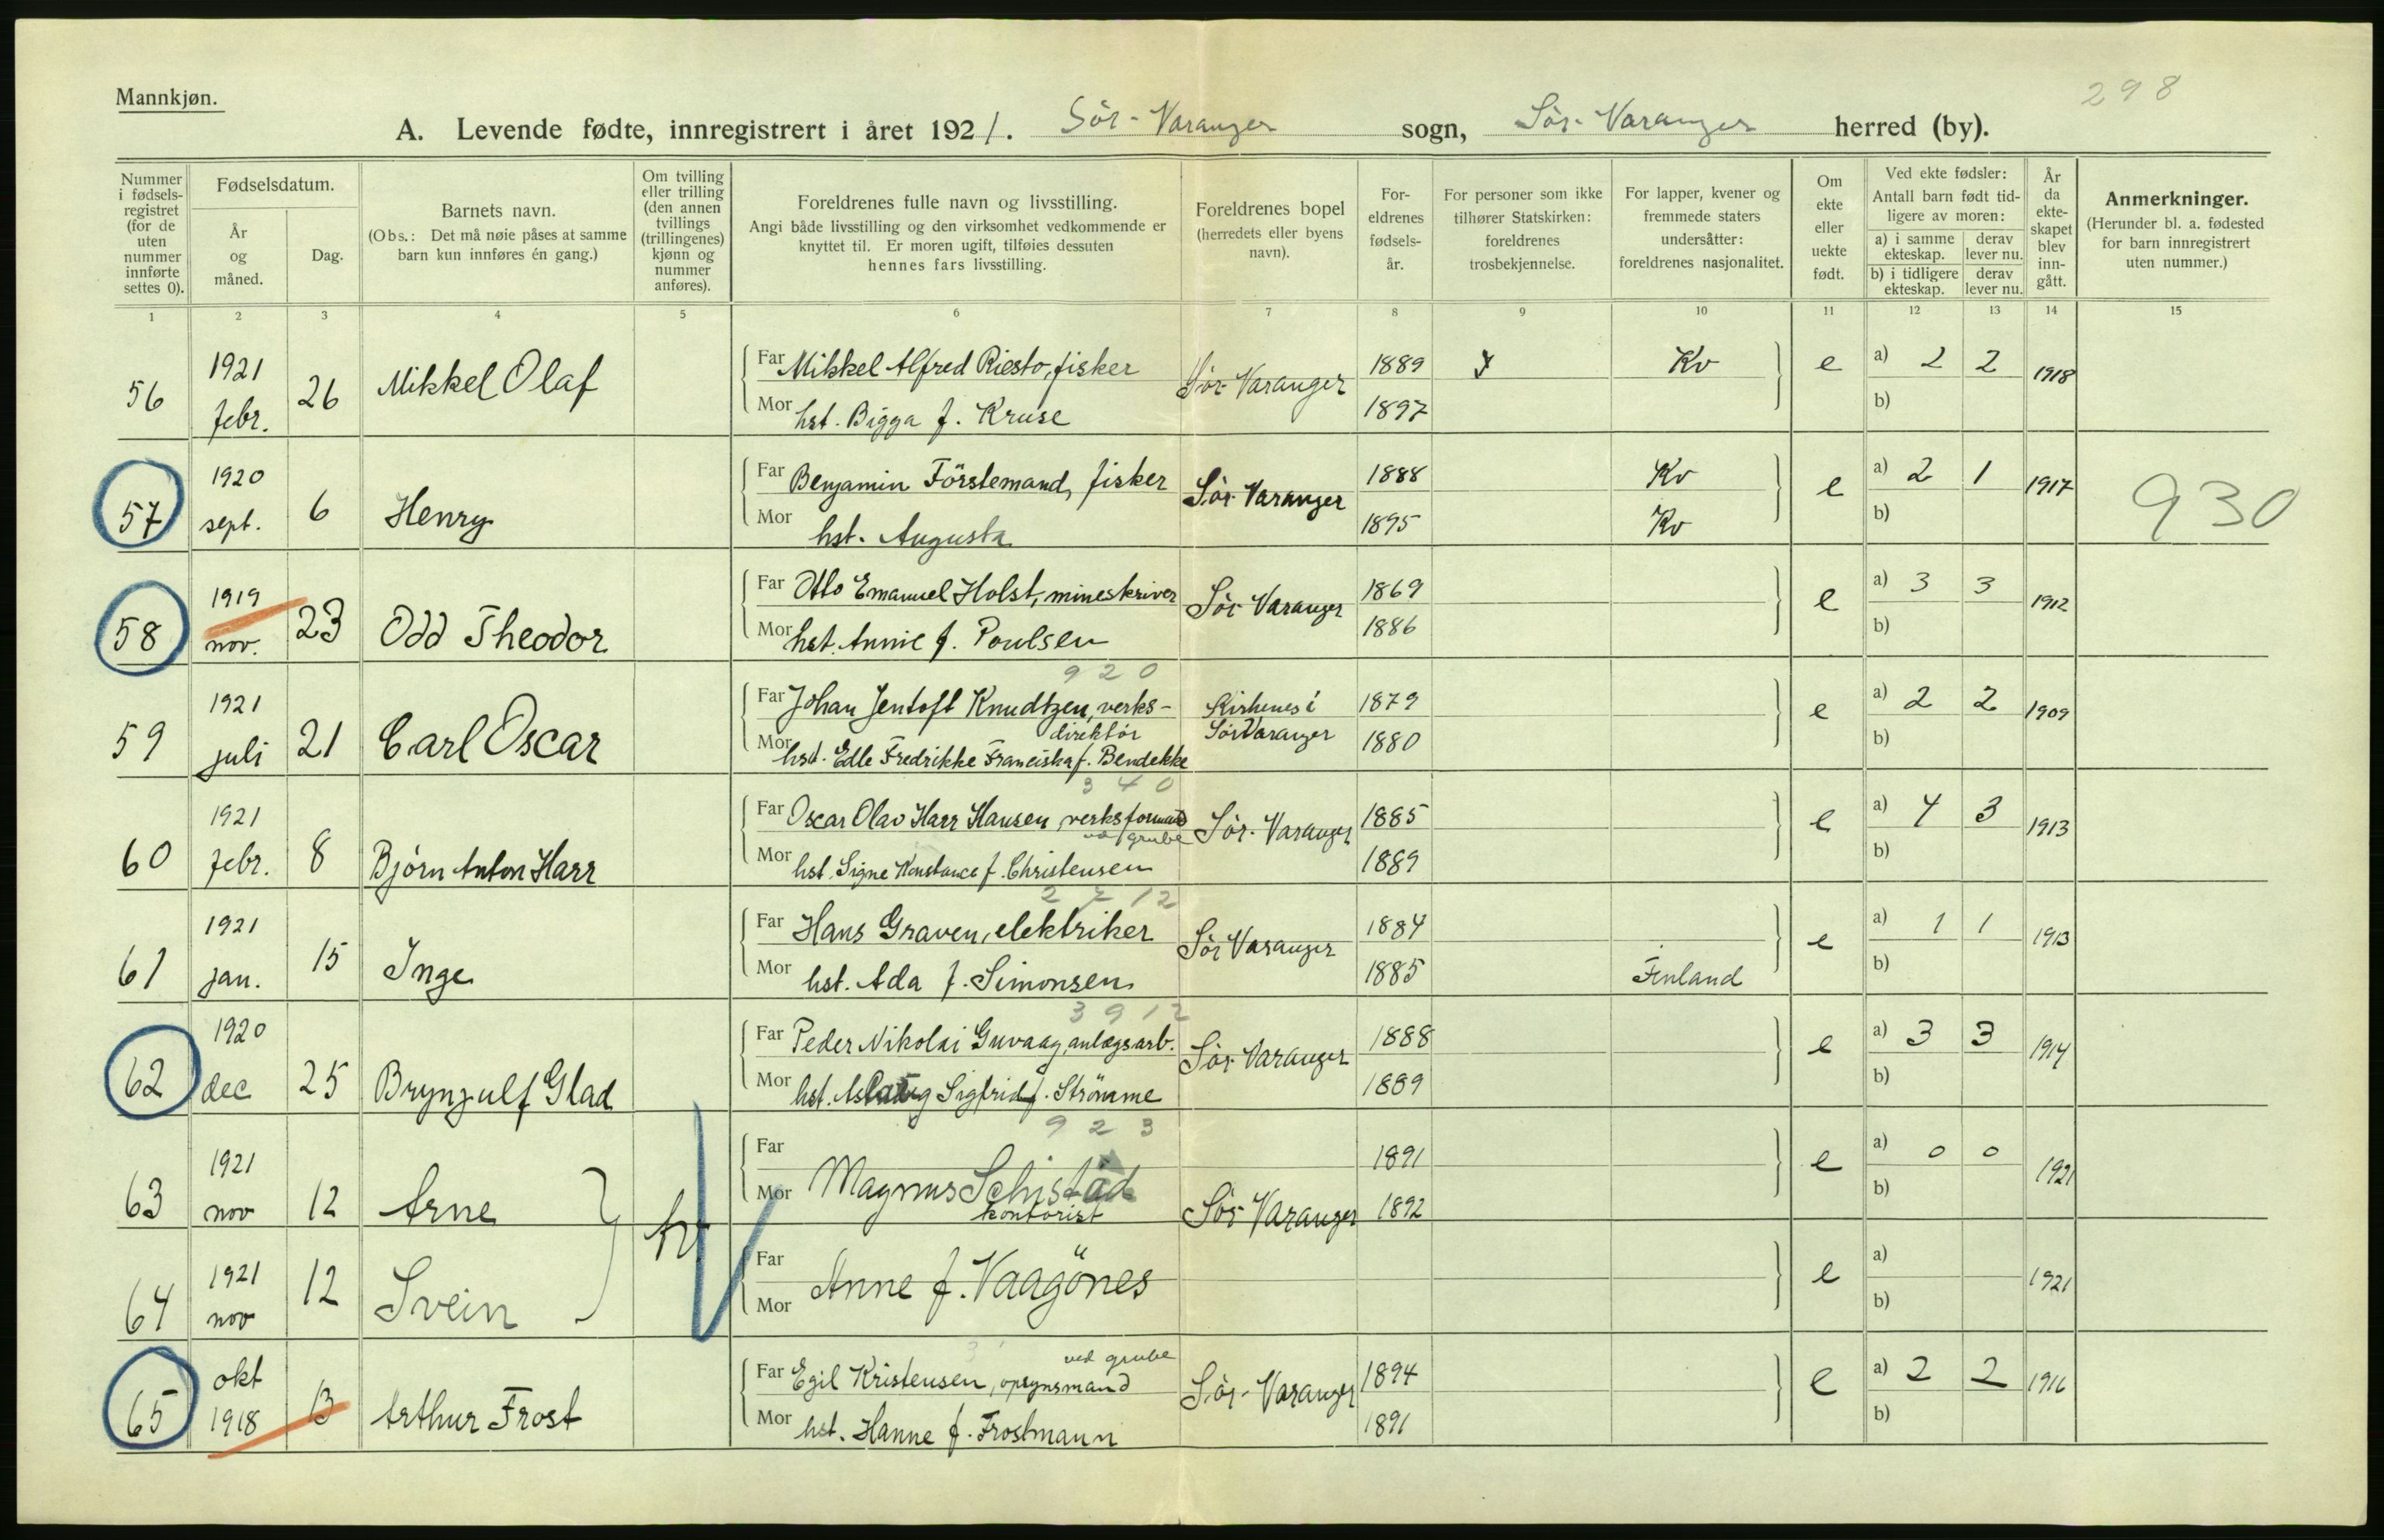 298
Mannkjøn.
A. Levende fødte, innregistrert i året 1921. Sör-Varanger sogn, Sör-Varanger herred (by).
Nummer i fødselsregistret (for de uten nummer innførte settes 0).
Fødselsdatum.
År og måned.
Dag.
Barnets navn.
(Obs.: Det må nøie påses at samme barn kun innføres én gang.)
Om tvilling eller trilling (den annen tvillings (trillingenes) kjønn og nummer anføres).
Foreldrenes fulle navn og livsstilling.
Angi både livsstilling og den virksomhet vedkommende er knyttet til. Er moren ugift, tilføies dessuten hennes fars livsstilling.
Foreldrenes bopel (herredets eller byens navn).
For-eldrenes fødsels-år.
For personer som ikke tilhører Statskirken: foreldrenes trosbekjennelse.
For lapper, kvener og fremmede staters undersåtter: foreldrenes nasjonalitet.
Om ekte eller uekte født.
Ved ekte fødsler:
Antall barn født tid-ligere av moren:
a) i samme ekteskap.
derav lever nu.
b) i tidligere ekteskap.
derav lever nu.
År da ekte-skapet blev inn-gått.
Anmerkninger.
(Herunder bl. a. fødested for barn innregistrert uten nummer.)
1 2 3 4 5 6 7 8 9 10 11 12 13 14 15
56 1921 febr. 26 Mikkel Olaf
Far Mikkel Alfred Riesto, fisker Sör-Varanger 1889 Kv e a) 2 2 1918
Mor hst. Bigga f. Kruse 1897 b)
57 1920 sept. 6 Henry
Far Benjamin Förstemand, fisker Sör-Varanger 1888 Kv e a) 2 1 1917 930
Mor hst. Augusta 1895 Kv b)
58 1919 nov. 23 Odd Theodor
Far Otto Emanuel Holst, mineskriver Sör-Varanger 1869 e a) 3 3 1912
Mor hst. Annie f. Poulsen 1886 b)
920
59 1921 juli 21 Carl Oscar
Far Johan Jentoft Knudtzen, verks-direktör Kirkenes i Sör Varanger 1879 e a) 2 2 1909
Mor hst. Edle Fredrikke Franciska f. Bendekke 1880 b)
340
60 1921 febr. 8 Björn Anton Harr
Far Oscar Olav Harr Hansen, verksformand ved grube Sör-Varanger 1885 e a) 4 3 1913
Mor hst. Signe Konstance f. Christensen 1889 b)
61 1921 jan. 15 Inge
Far Hans Graven, elektriker Sör Varanger 1884 e a) 1 1 1913
Mor hst. Ada f. Simonsen 1885 Finland b)
3912
62 1920 dec 25 Brynjulf Glad
Far Peder Nikolai Guvaag, anlægsarb. Sör-Varanger 1888 e a) 3 3 1914
Mor hst. Aslaug Sigfrid f. Strömme 1889 b)
923
63 1921 nov 12 Arne
Far Magnus Schistad kontorist 1891 e a) 0 0 1921
Mor Sör-Varanger 1892 b)
64 1921 nov 12 Svein
Far Anne f. Vaagönes e a) 1921
Mor b)
65 okt 1918 13 Arthur Frost
Far Egil Kristensen, opsynsmand ved grube Sör-Varanger 1894 e a) 2 2 1916
Mor hst. Hanne f. Frostmann 1891 b)